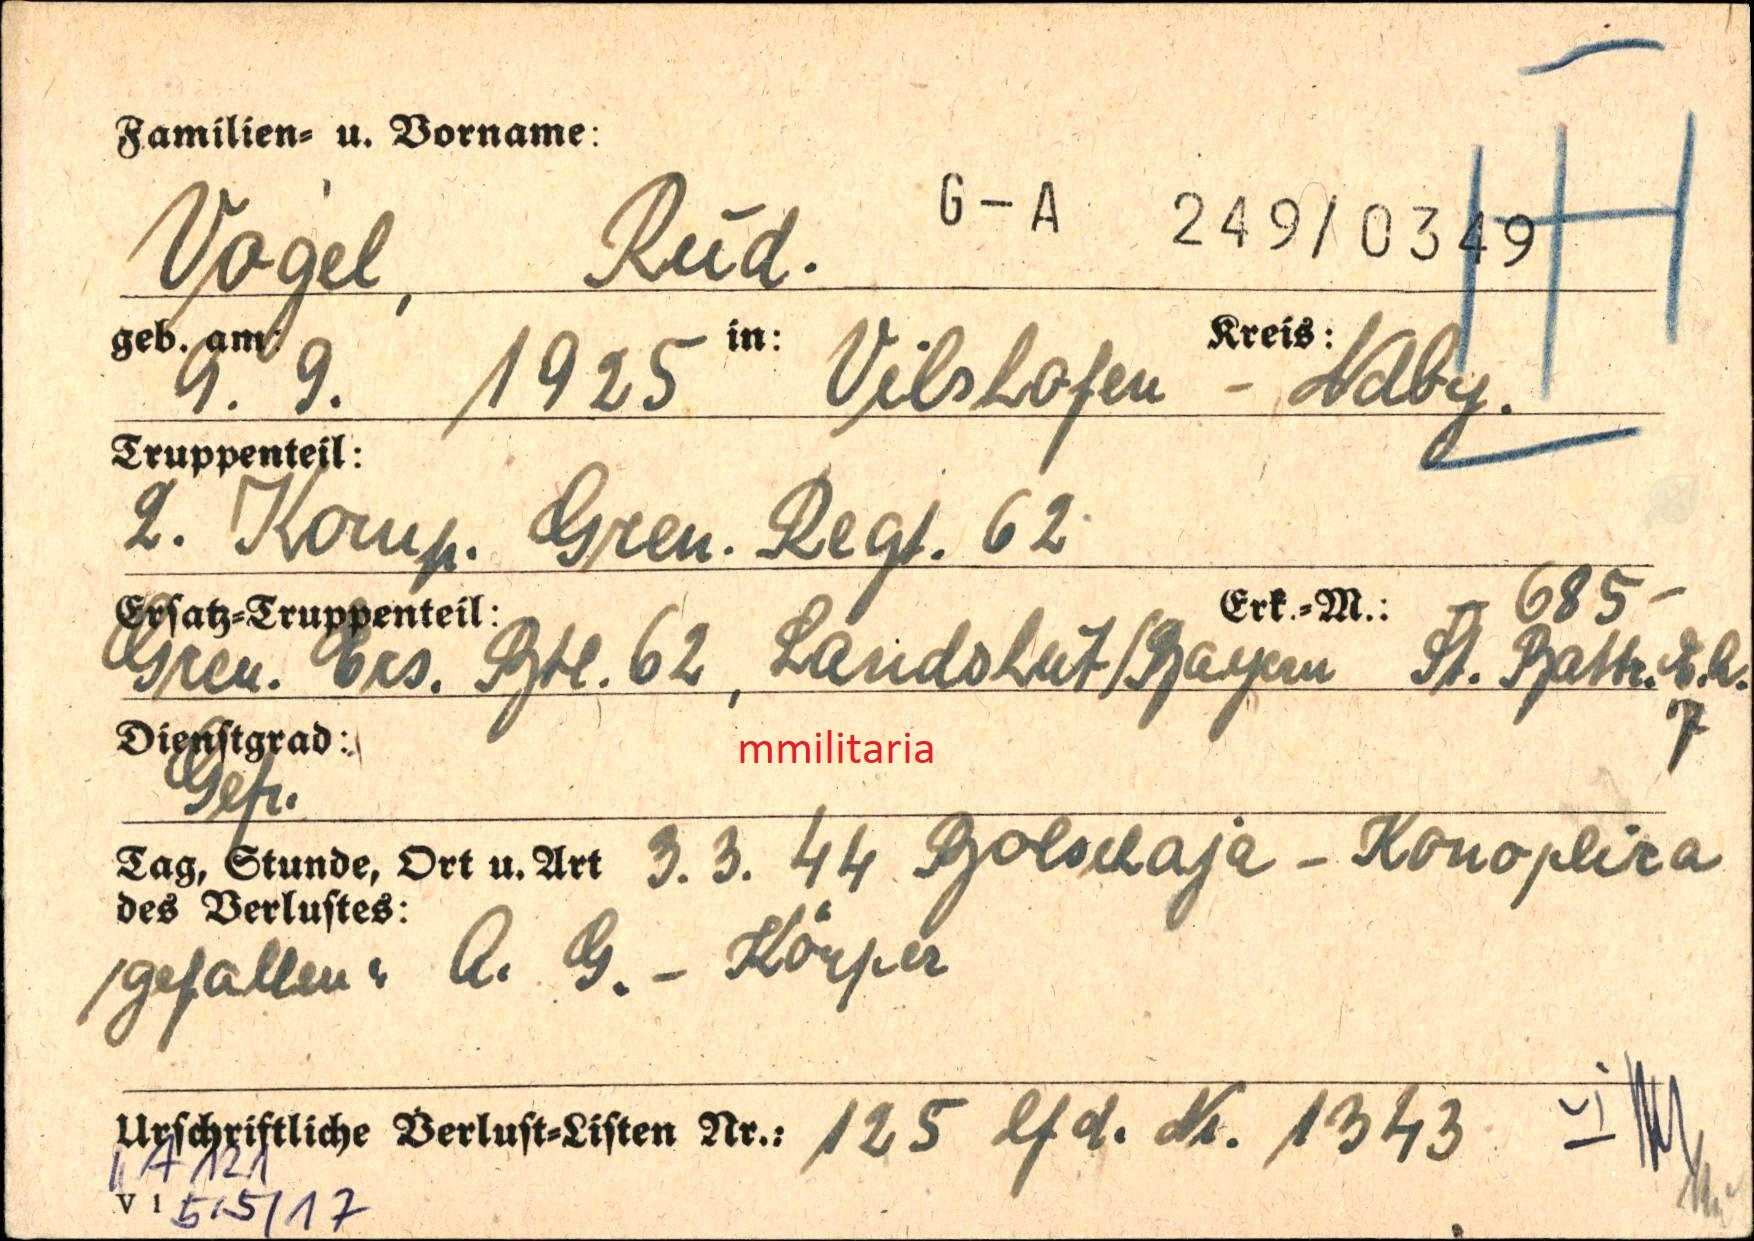 Familien- u. Vorname:
Vogel, Rud. G-A 249/0349
geb. am: 9. 9. 1925 in: Vilshofen Kreis: - Ndby.
Truppenteil:
2. Komp. Gren. Regt. 62
Ersatz-Truppenteil: Erk.-M.: - 685 -
Gren. Ers. Btl. 62, Landshut/Bayern St. Battr. E.A.
7
Dienstgrad:
mmilitaria
Gefr.
Tag, Stunde, Ort u. Art 3. 3. 44 Bolschaja - Konoplira
des Verlustes:
gefallen: A. G. - Körper
Urschriftliche Verlust-Listen Nr.: 125 lfd. Nr. 1343 VI
A 121
V 1 515/17